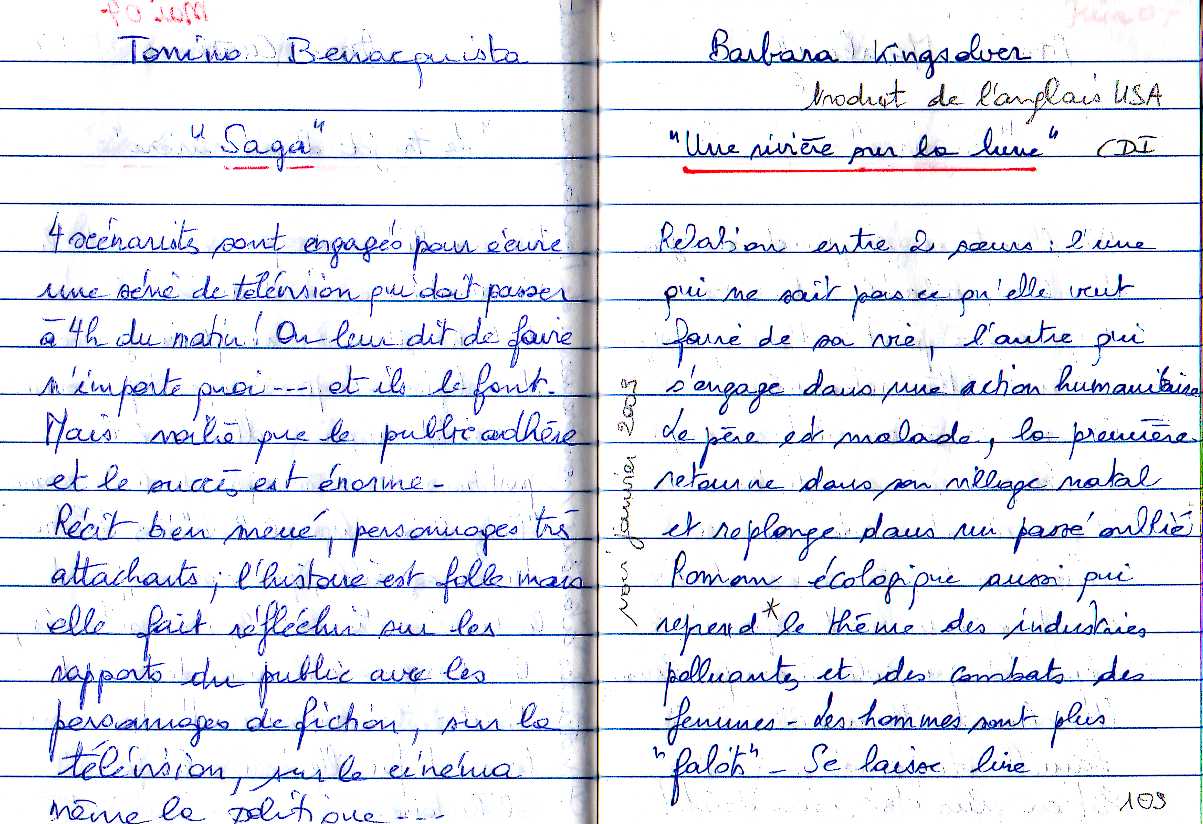 Mai 04
Tonino Benacquista
"Saga"
4 scénarists sont engagés pour écrire
une série de télévision qui doit passer
à 4h du matin! On leur dit de faire
n'importe quoi --- et ils le font.
Mais voilà que le public adhère
et le succès est énorme -
Récit bien mené, personnages très
attachants ; l'histoire est folle mais
elle fait réfléchir sur les
rapports du public avec les
personnages de fiction, sur la
télévision, sur le cinéma
même la politique ---
Barbara Kingsolver
traduit de l'anglais USA
"Une rivière sur la lune" CDI
Relation entre 2 sœurs : l'une
qui ne sait pas ce qu'elle veut
faire de sa vie, l'autre qui
s'engage dans une action humanitaire
Le père est malade, la première
retourne dans son village natal
et replonge dans un passé oublié
Roman écologique aussi qui
reprend * le thème des industries
polluantes et des combats des
femmes - Les hommes sont plus
"falôts" - Se laisse lire
109
voir janvier 2003